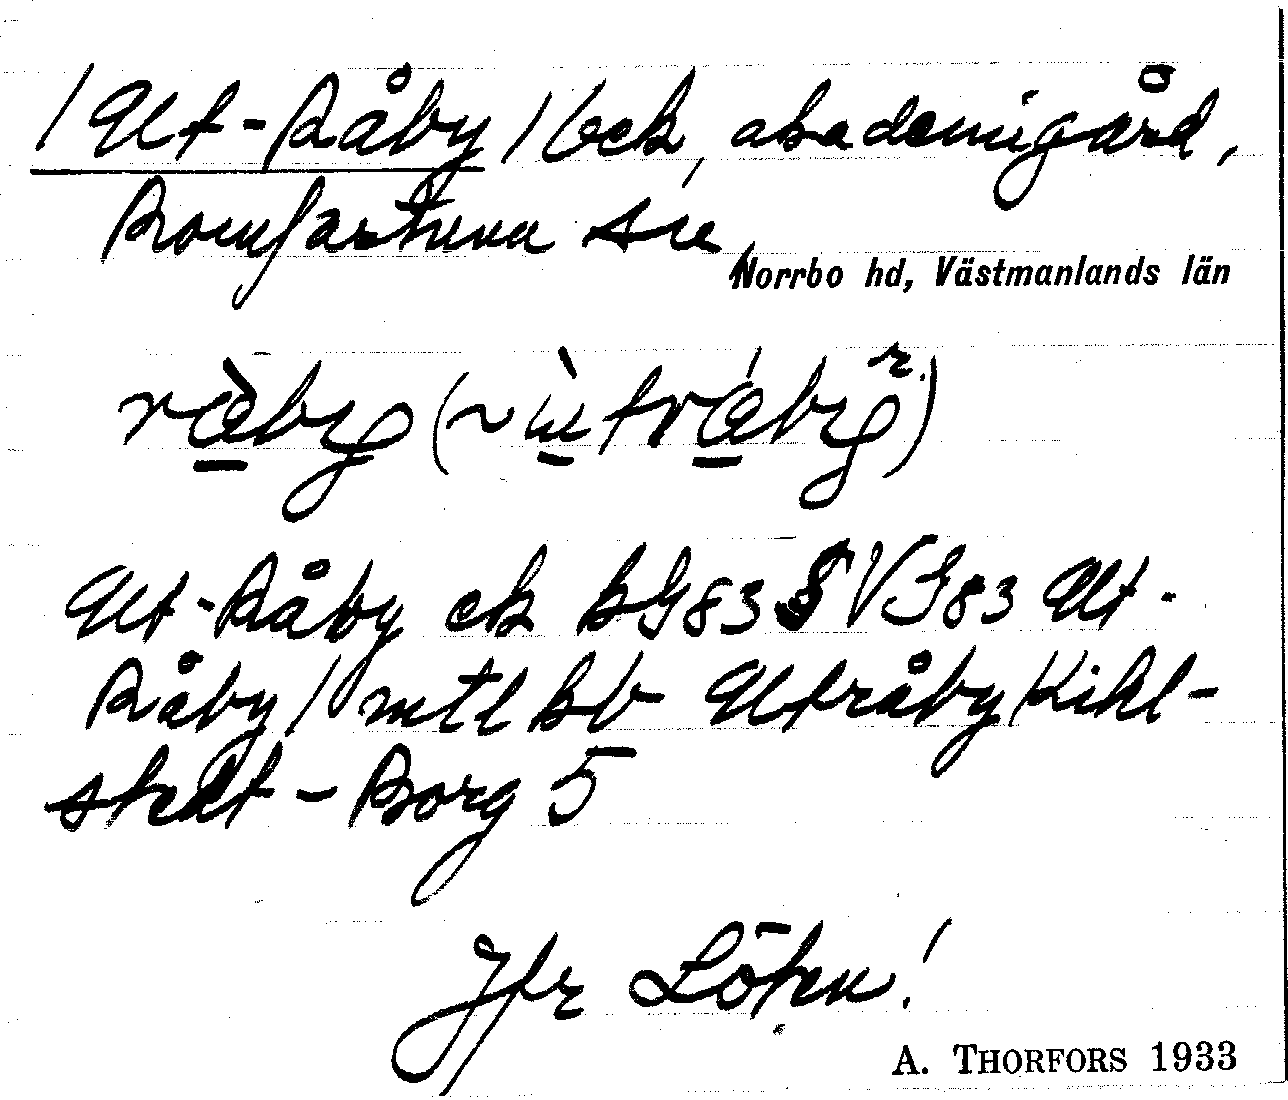 /Ut-Råby/ bek, akademigård,
Romfartuna sn
Norrbo hd, Västmanlands län
Ut-Råby ek bG83 § VG83 Ut-
Råby/ mtl kb Utråby Kihl-
stedt - Borg 5
Jfr Löten!
A. THORFORS 1933